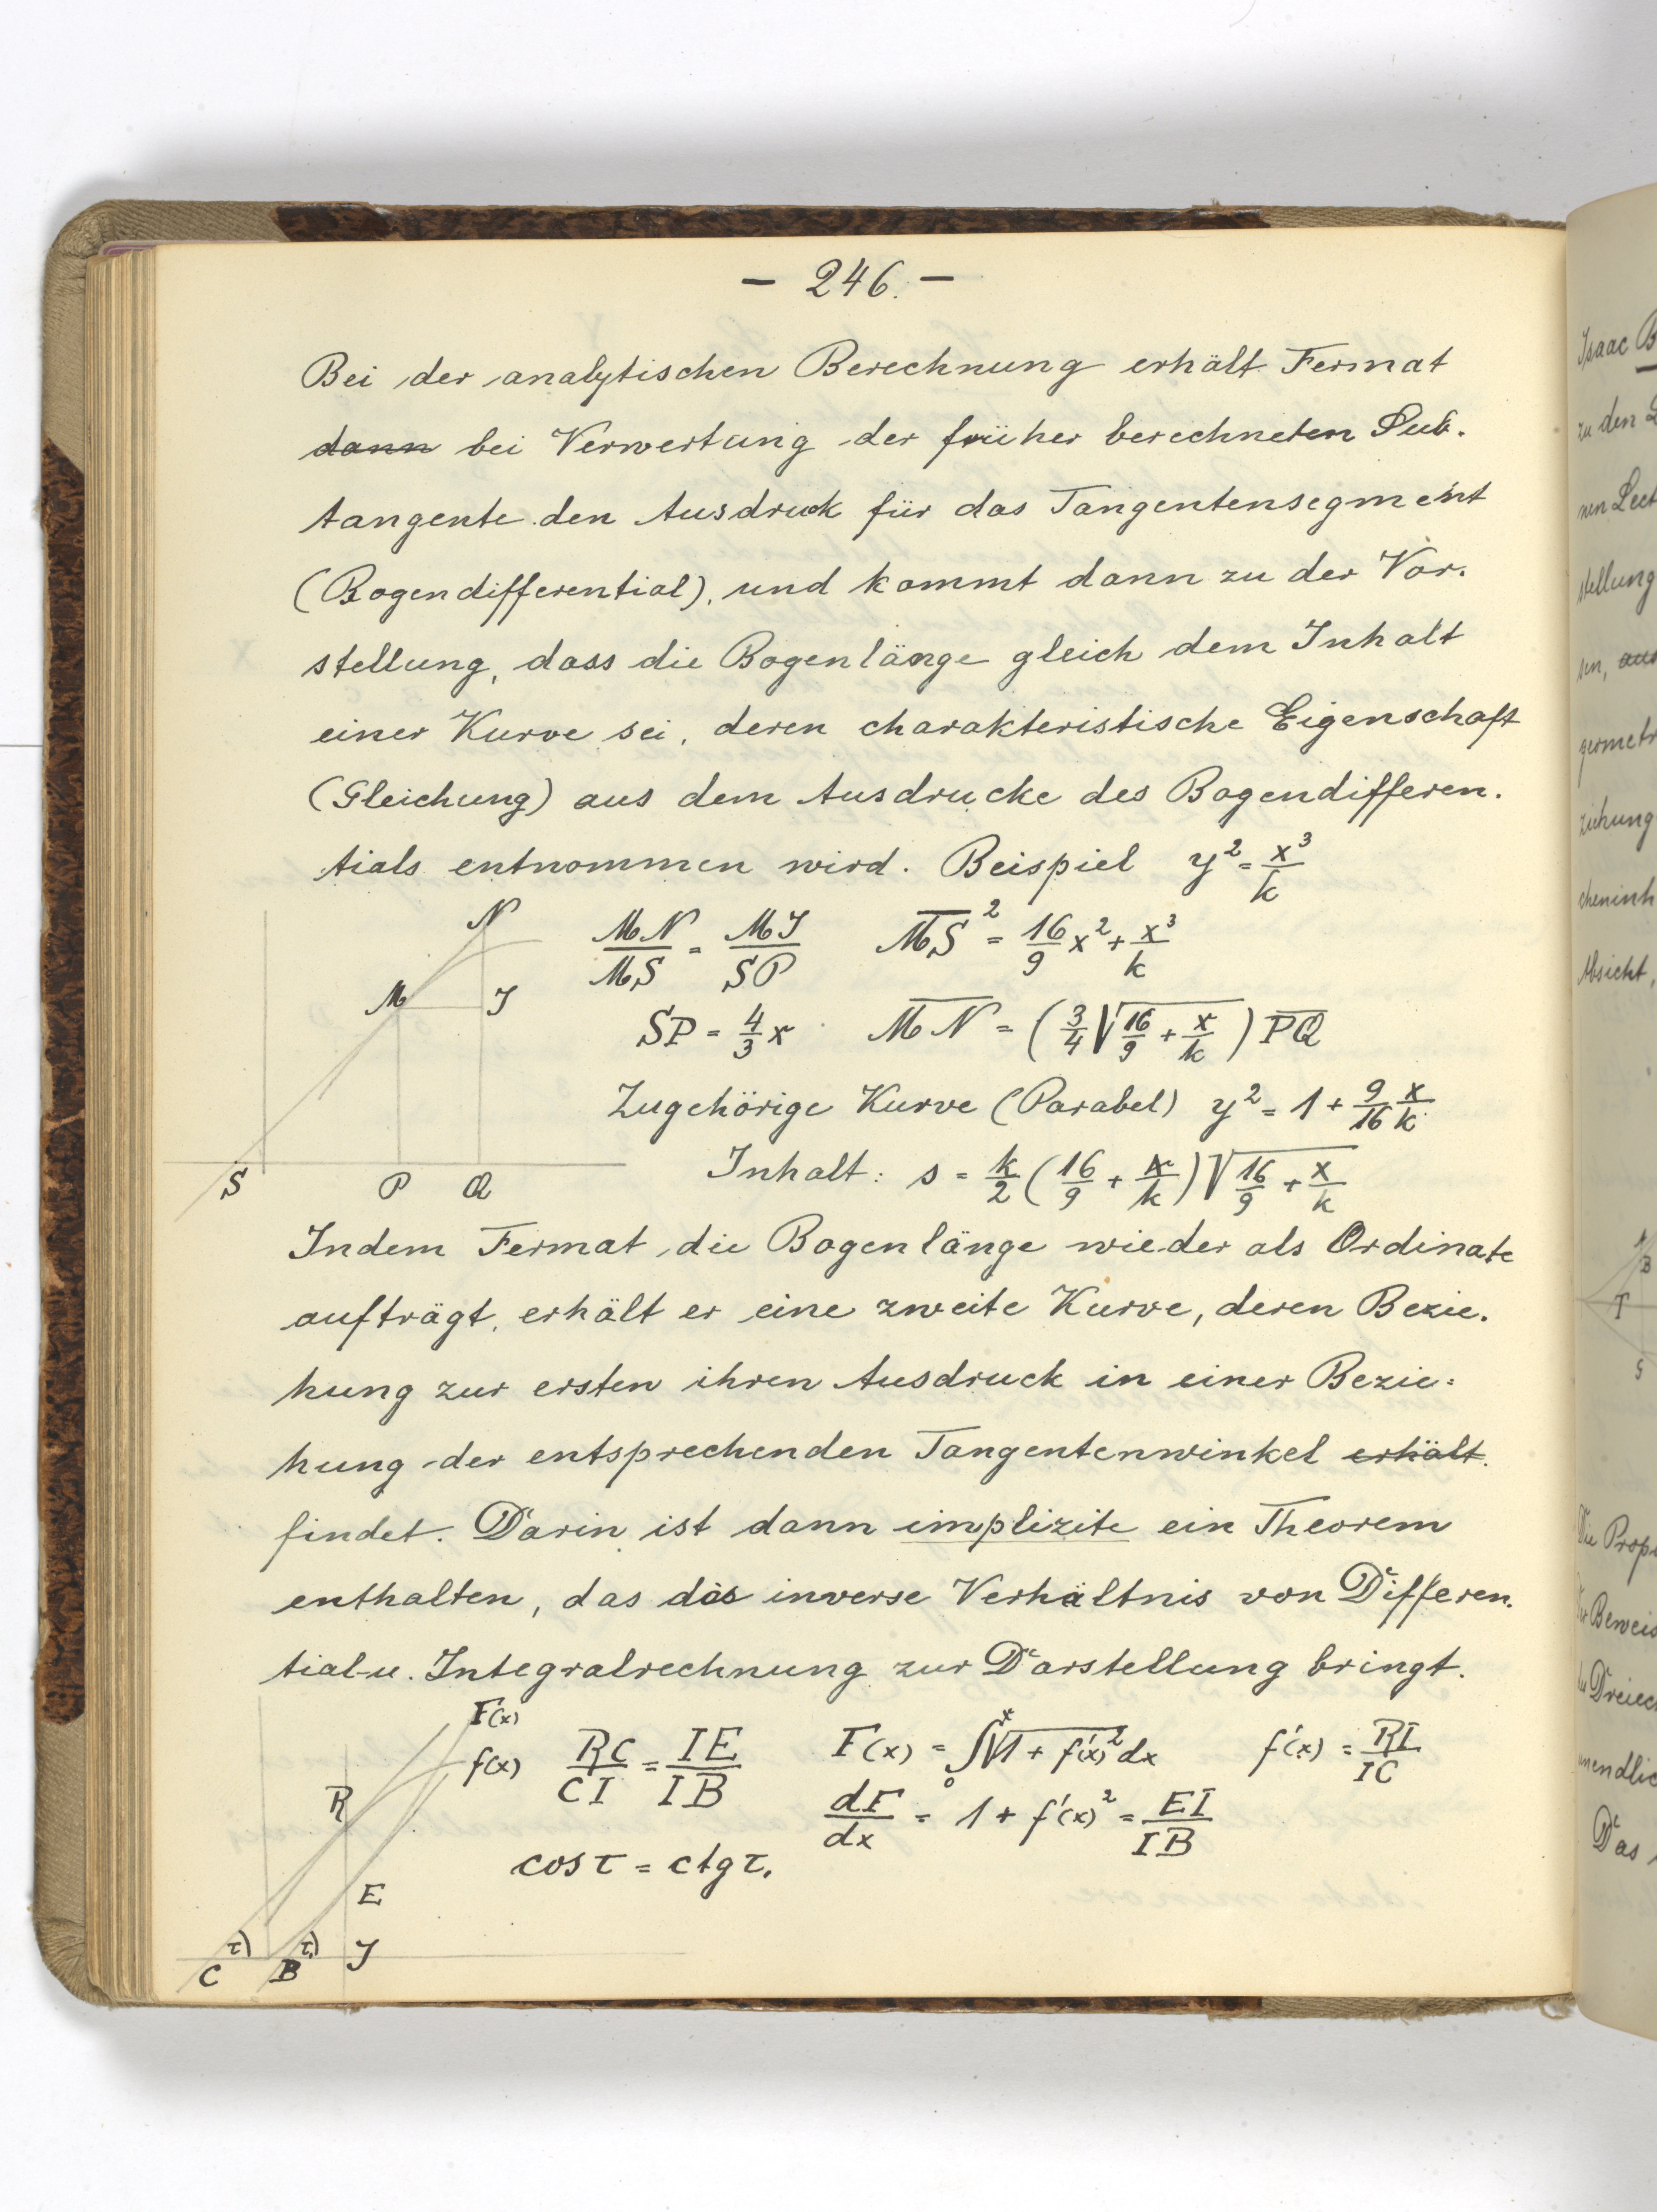 - 246. -
Bei der analytischen Berechnung erhält Fermat
dann bei Verwertung der früher berechneten Sub-
tangente den Ausdruck für das Tangentensegment
(Bogendifferential), und kommt dann zu der Vor-
stellung, dass die Bogenlänge gleich dem Inhalt
einer Kurve sei, deren charakteristische Eigenschaft
(Gleichung) aus dem Ausdrucke des Bogendifferen-
tials entnommen wird. Beispiel y² = x³/k
N
M
J
S P Q
MN/MS = MJ/SP   MS² = 16/9 x² + x³/k
SP = 4/3 x   MN = (3/4 √(16/9 + x/k)) PQ
Zugehörige Kurve (Parabel) y² = 1 + 9/16 x/k
Inhalt: s = k/2 (16/9 + x/k) √(16/9 + x/k)
Indem Fermat die Bogenlänge wieder als Ordinate
aufträgt, erhält er eine zweite Kurve, deren Bezie-
hung zur ersten ihren Ausdruck in einer Bezie-
hung der entsprechenden Tangentenwinkel erhält.
findet. Darin ist dann implizite ein Theorem
enthalten, das das inverse Verhältnis von Differen-
tial- u. Integralrechnung zur Darstellung bringt.
F(x)
f(x)
R
E
τ) τ₁)
C B J
RC/CI = IE/IB   F(x) = ∫₀ˣ √(1 + f'(x)²) dx   f'(x) = RI/IC
dF/dx = 1 + f'(x)² = EI/IB
cos τ = ctg τ₁
Isaac B
zu den
nen Lect
stellung
sen, aus
geometr
ziehung
cheninh
Absicht,
A
B
T
G
Die Prop
Beweis
Dreiec
unendlic
Das